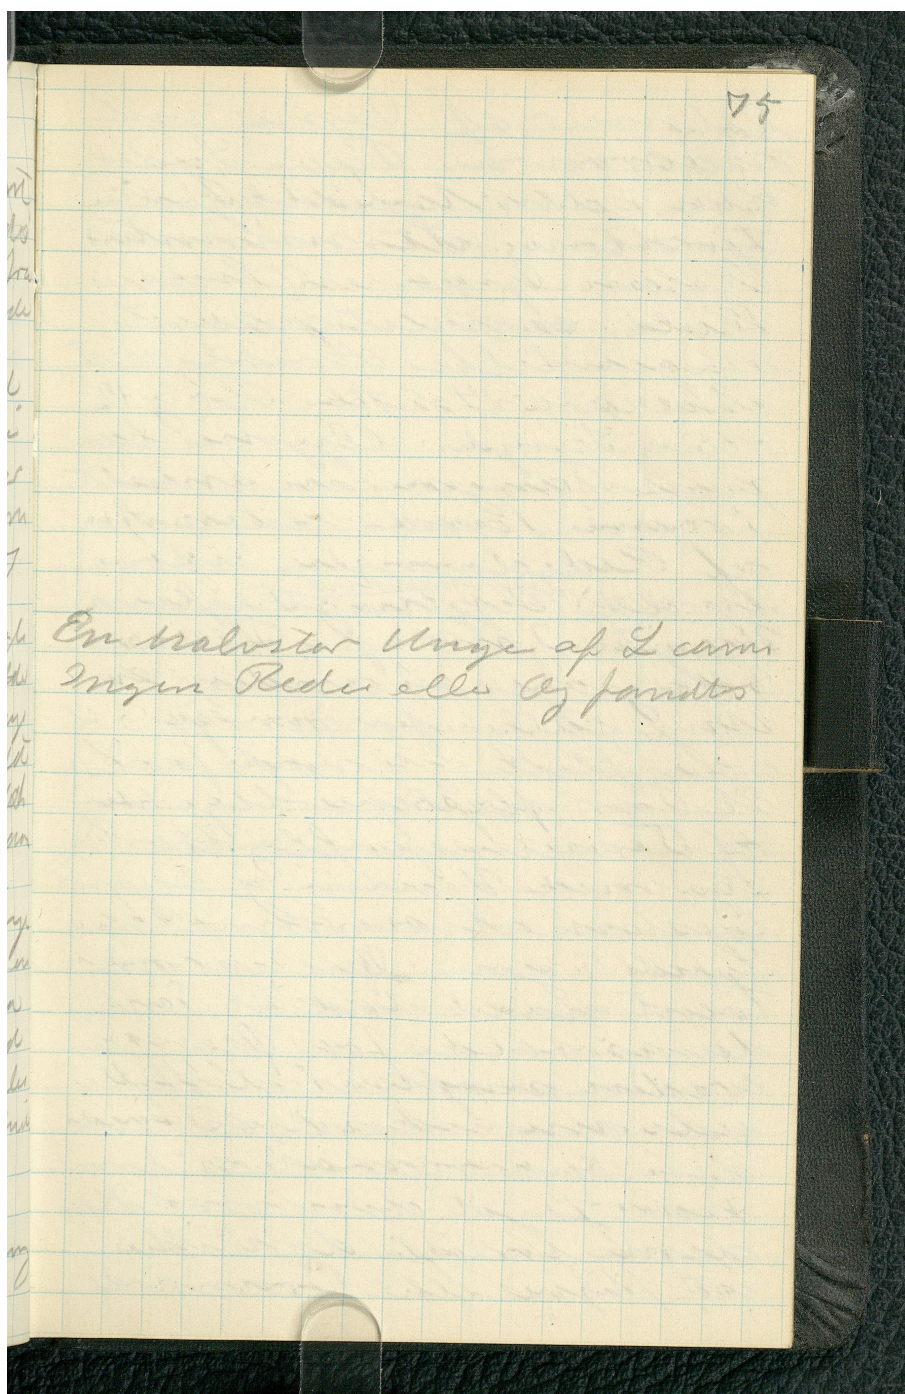 75
En halvstor Unge af L canus
Ingen Reder eller Æg fandtes